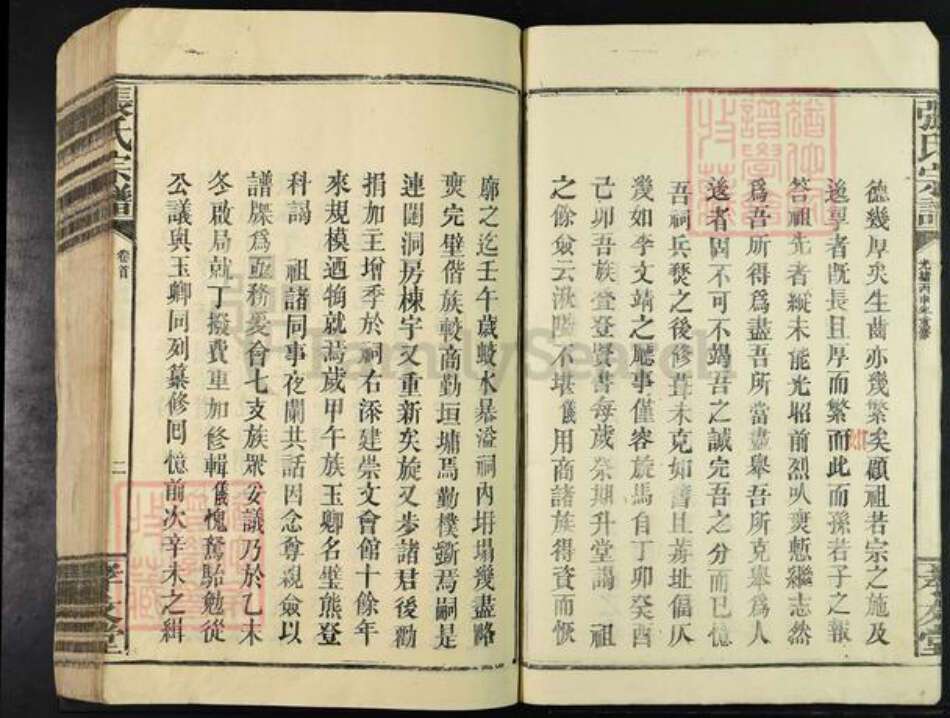 張氏宗譜
光緒丙申年重修
孝友堂
德幾厚矣生齒亦幾繁矣顧祖若宗之施及
遙享者既長且厚而繁而此而孫若子之報
答祖先者縱未能光昭前烈以衷慙繼志然
為吾所得為盡吾所當盡舉吾所克舉為人
遂者固不可不竭吾之誠完吾之分而已憶
吾祠兵燹之後修葺未克如舊且基址偪仄
幾如李文靖之廳事僅容旋馬自丁卯癸酉
己卯吾族登賢書每歲祭期升堂謁 祖
之餘僉云湫隘不堪儀用商諸族得資而恢
廓之迄壬午歲蛟水暴溢祠內坍塌幾盡略
奠完壁偕族較商勤垣墉焉勤樸斲焉嗣是
連闥洞房棟宇又重新矣旋又步諸君後勸
捐加主增季於祠右添建崇文會館十餘年
來規模迺觕就焉歲甲午族玉卿名璧熊登
科謁 祖諸同事夜闌共話因念尊親僉以
譜牒為亟務爰合七支族眾妥議乃於乙未
冬啟局就丁擬費車加修輯儀愧駑駘勉從
公議與玉卿同列纂修回憶前次辛未之緝
張氏宗譜
卷首
二
孝友堂